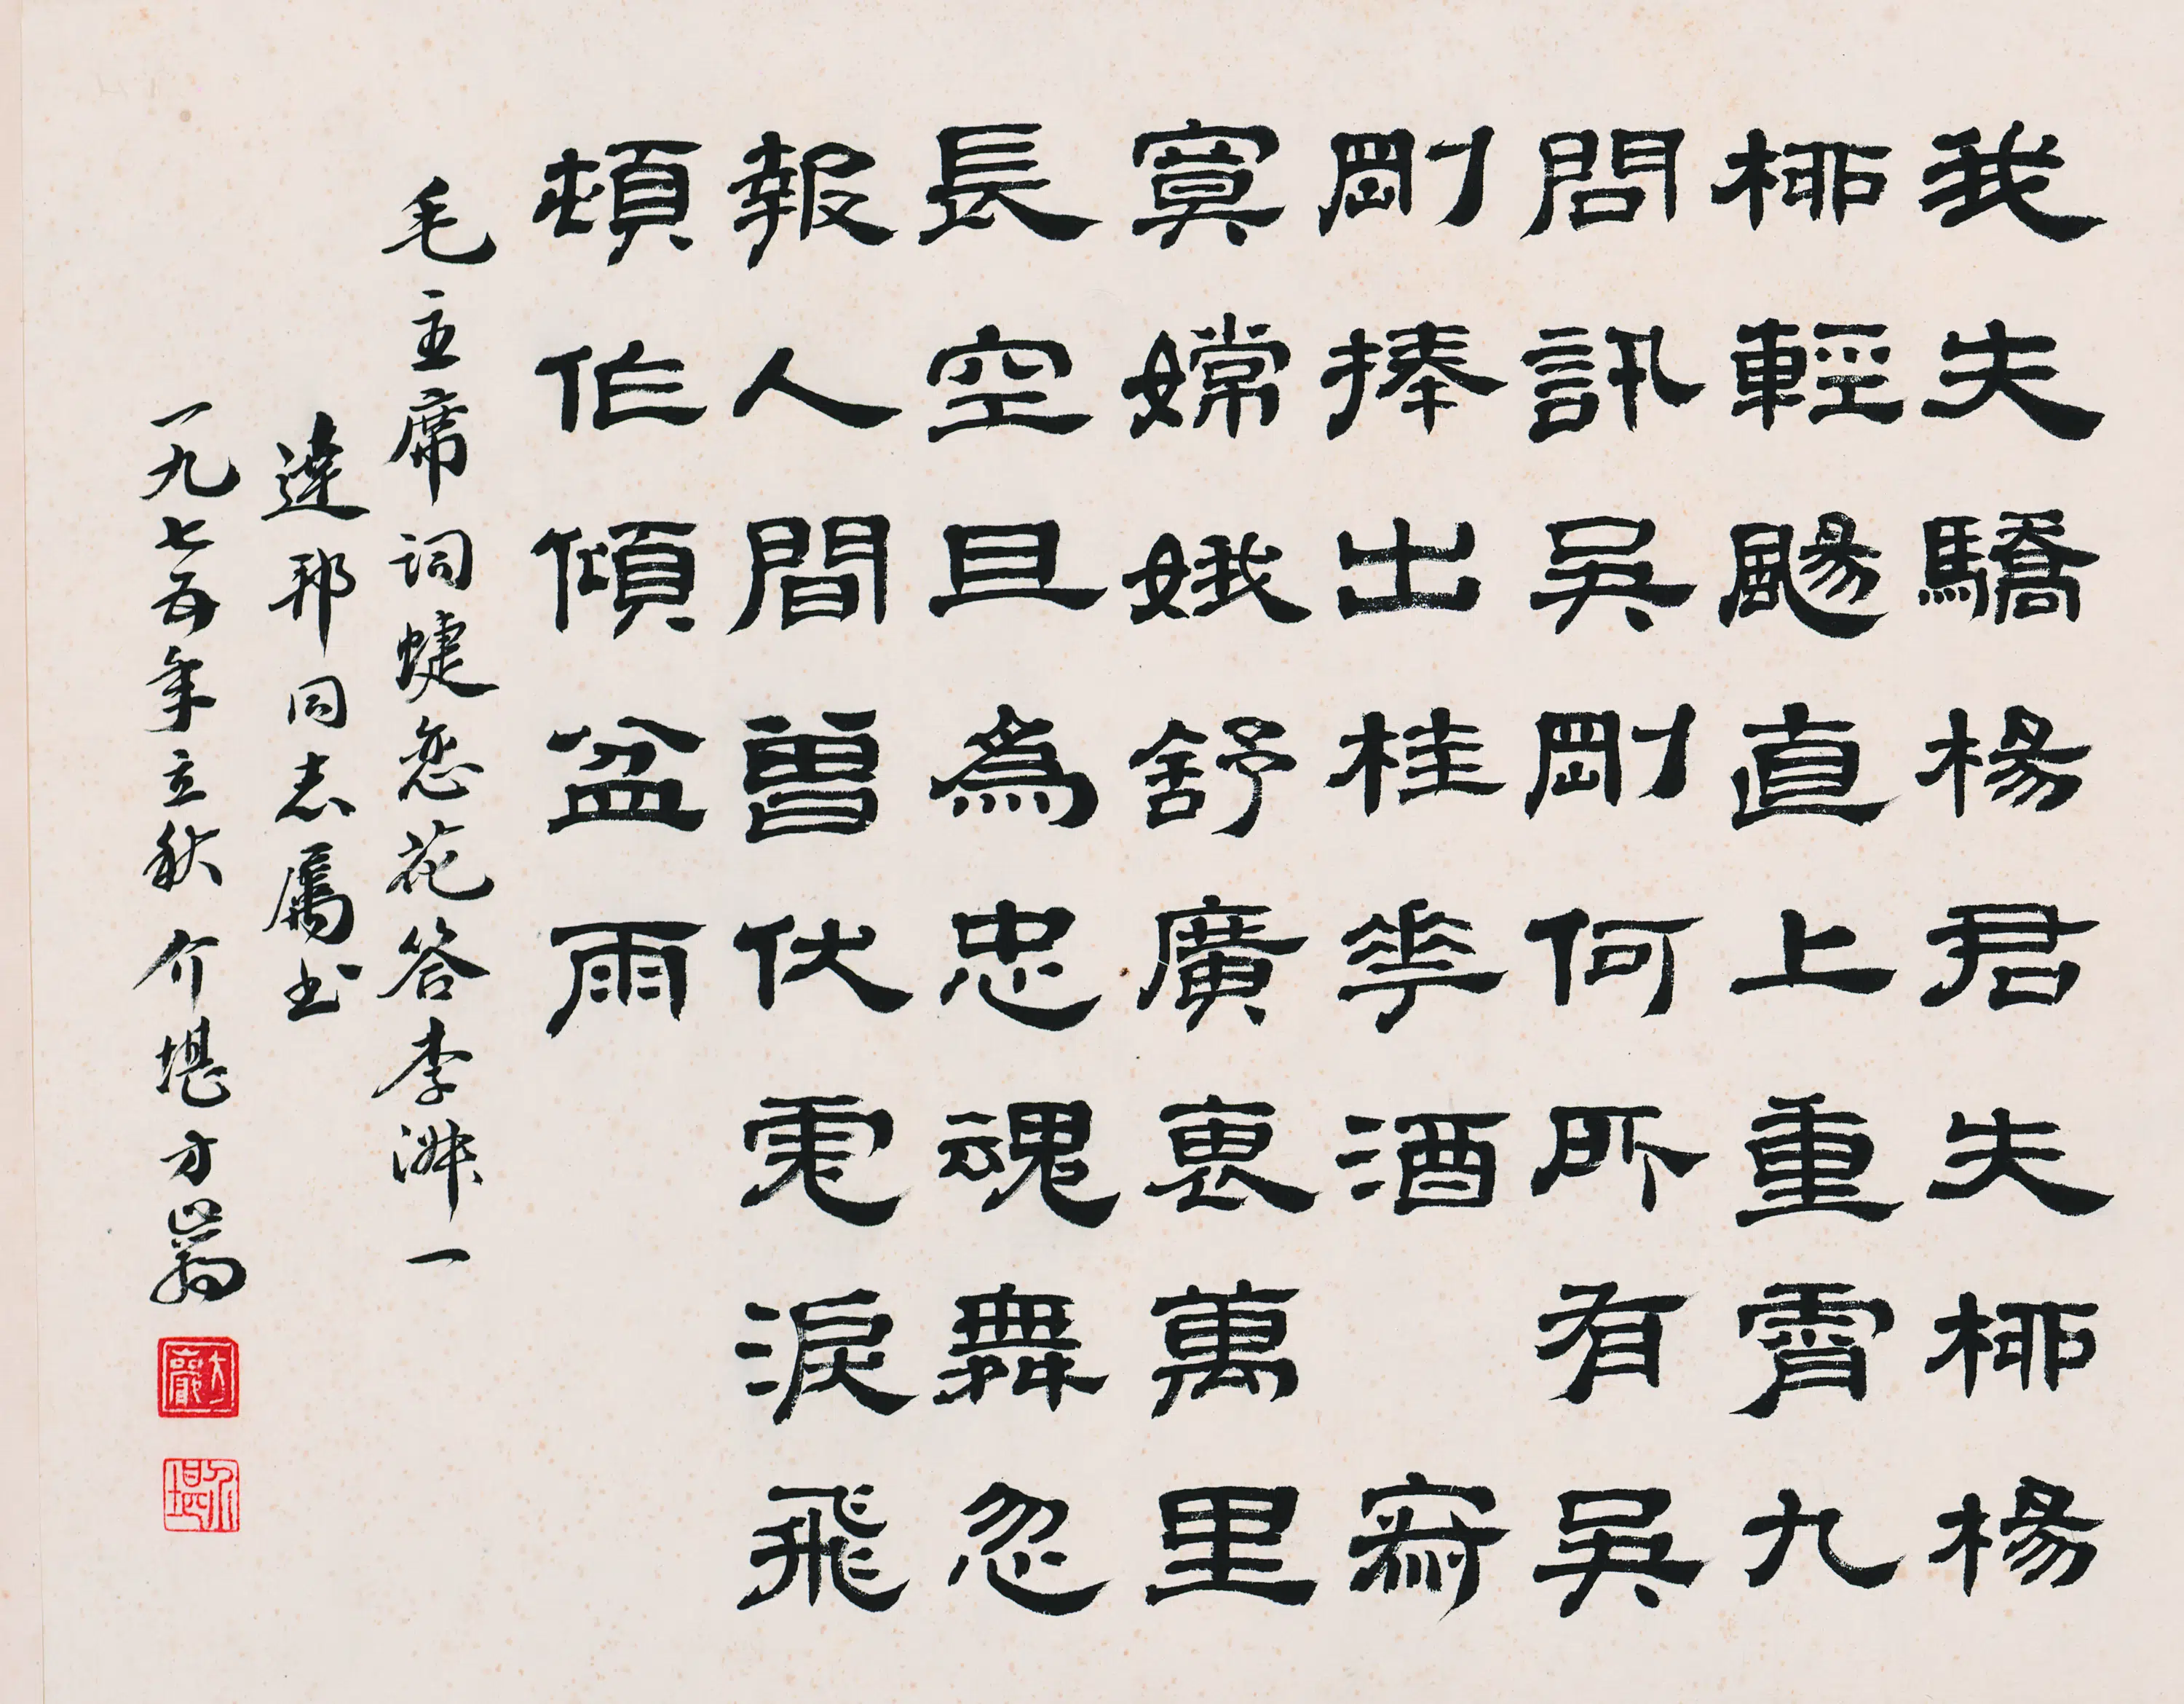 我失驕楊君失桺楊
桺輕颺直上重霄九
問訊吳剛何所有吳
剛捧出桂華酒 寂
寞嫦娥舒廣袖萬里
長空且為忠魂舞忽
報人間曾伏虎淚飛
頓作傾盆雨
毛主席詞蝶恋花答李淑一
達邦同志屬书
一九七五年立秋 介堪方巖
方巖
介堪